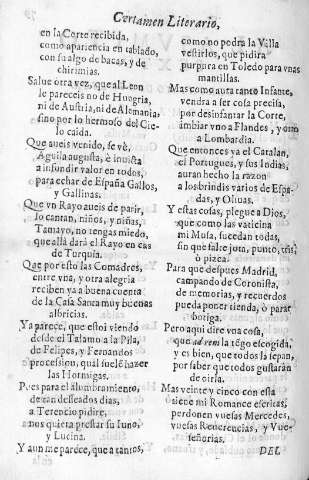 Certamen Literario,
en la Corte recibida,
como apariencia en tablado,
con su algo de bacas, y de
chirimias.
Salue otra vez, que al Leon
le pareceis no de Hungria,
ni de Austria, ni de Alemania,
sino por lo hermoso del Cielo
caida.
Que aueis venido, se vè,
Aguila augusta, è inuicta
a infundir valor en todos,
para echar de España Gallos,
y Gallinas.
Que vn Rayo aueis de parir,
lo cantan, niños, y niñas,
Tamayo, no tengas miedo,
que allà darà el Rayo en cas
de Turquia.
Que por esso las Comadres,
entre vna, y otra alegria
reciben ya a buena cuenta
de la Casa Santa muy buenas
albricias.
Ya parece, que estoi viendo
desde el Talamo a la Pila,
de Felipes, y Fernandos
procession, qual suelẽ hazer
las Hormigas.
Pues para el alumbramiento,
de tan desseados dias,
a Terencio pidire,
nos quiera prestar su Iuno,
y Lucina.
Y aun me parece, que a tantos,
como no podra la Villa
vestirlos, que pidira
purpura en Toledo para vnas
mantillas.
Mas como aura tanto Infante,
vendra a ser cosa precisa,
por desinfantar la Corte,
ambiar vno a Flandes, y otro
a Lombardia.
Que entonces ya el Catalan,
el Portugues, y sus Indias,
auran hecho la razon
a los brindis varios de Espadas,
y Oliuas.
Y estas cosas, plegue a Dios,
que como las vaticina
mi Musa, sucedan todas,
sin que falte jota, punto, tils,
ò pizca.
Para que despues Madrid,
campando de Coronista,
de memorias, y recuerdos
pueda poner tienda, ò parar
botiga.
Pero aqui dire vna cosa,
que ad rem la tẽgo escogida,
y es bien, que todos la sepan,
por saber que todos gustaràn
de oirla.
Mas veinte y cinco con esta
tiene mi Romance escritas,
perdonen vuesas Mercedes,
vuesas Reuerencias, y Vueseñorias.
DEL